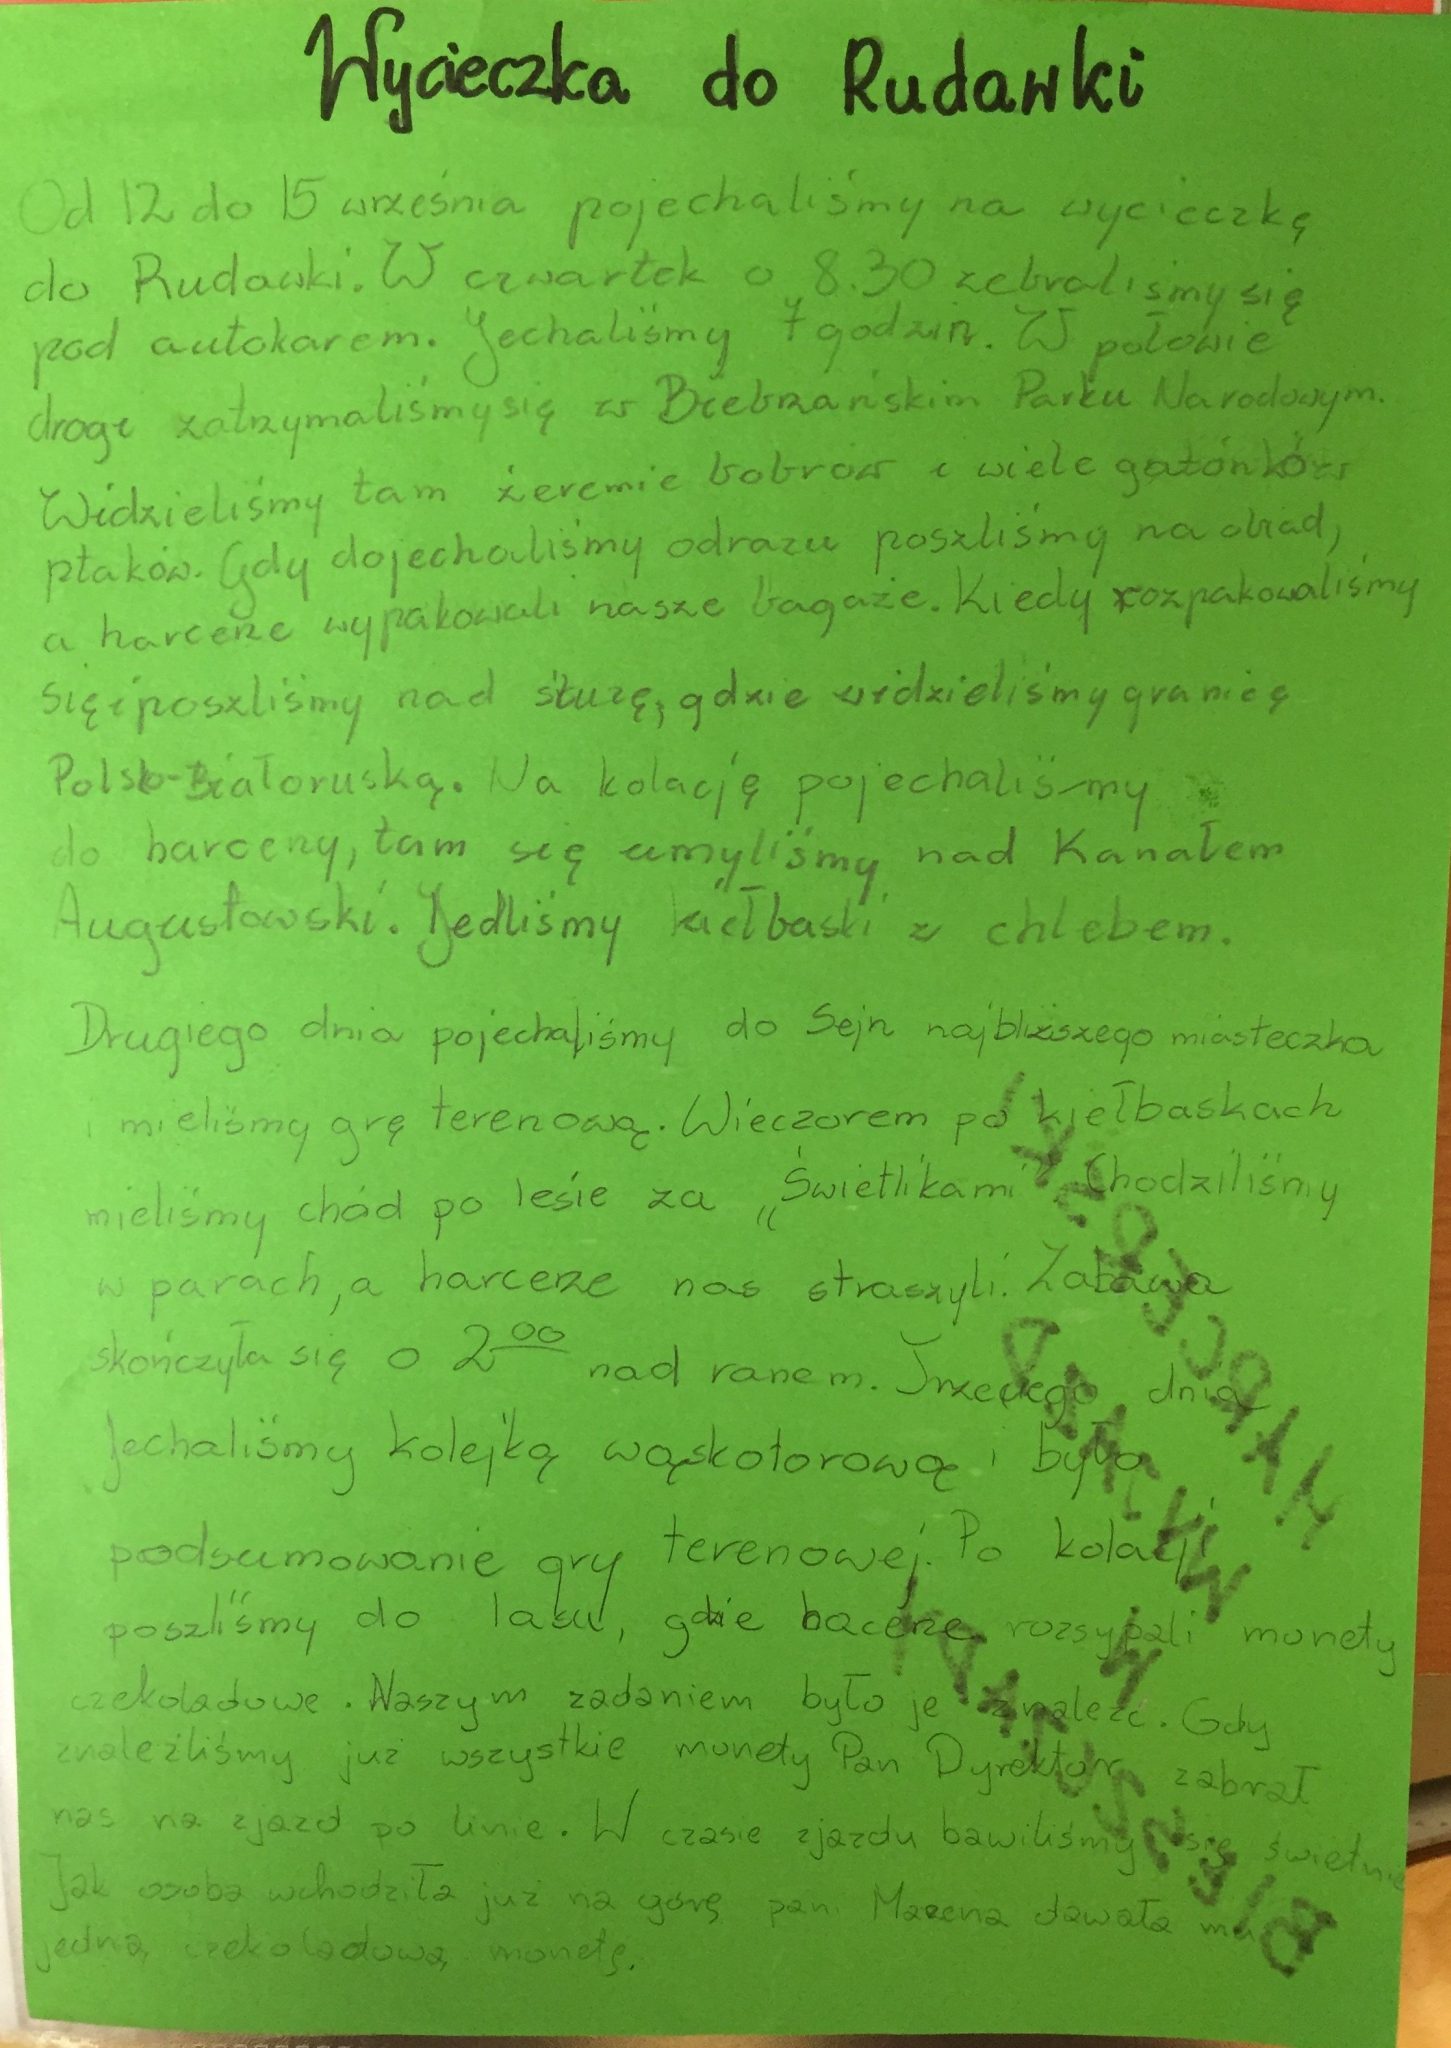 Wycieczka do Rudawki
Od 12 do 15 września pojechaliśmy na wycieczkę
do Rudawki. W czwartek o 8.30 zebraliśmy się
pod autokarem. Jechaliśmy 7 godzin. W połowie
drogi zatrzymaliśmy się w Biebrzańskim Parku Narodowym.
Widzieliśmy tam żeremie bobrów i wiele gatónków
ptaków. Gdy dojechaliśmy odrazu poszliśmy na obiad,
a harcerze wypakowali nasze bagaże. Kiedy rozpakowaliśmy
się i poszliśmy nad śluzę, gdzie widzieliśmy granicę
Polsko-Białoruską. Na kolację pojechaliśmy
do harceny, tam się umyliśmy nad Kanałem
Augustowski. Jedliśmy kiełbaski z chlebem.
Drugiego dnia pojechaliśmy do Sejn najbliższego miasteczka
i mieliśmy grę terenową. Wieczorem po kiełbaskach
mieliśmy chód po lesie za „Świetlikami" Chodziliśmy
w parach, a harcerze nas straszyli. Zabawa
skończyła się o 2⁰⁰ nad ranem. Trzeciego dnia
Jechaliśmy kolejką wąskotorową i było
podsumowanie gry terenowej. Po kolacji
poszliśmy do lasu, gdzie rozsypali monety
czekoladowe. Naszym zadaniem było je znaleźć. Gdy
znaleźliśmy już wszystkie monety Pan Dyrektor zabrał
nas na zjazd po linie. W czasie zjazdu bawiliśmy się świetnie
Jak osoba wchodziła już na górę pani Marzena dawała mu
jedną czekoladową monetę.